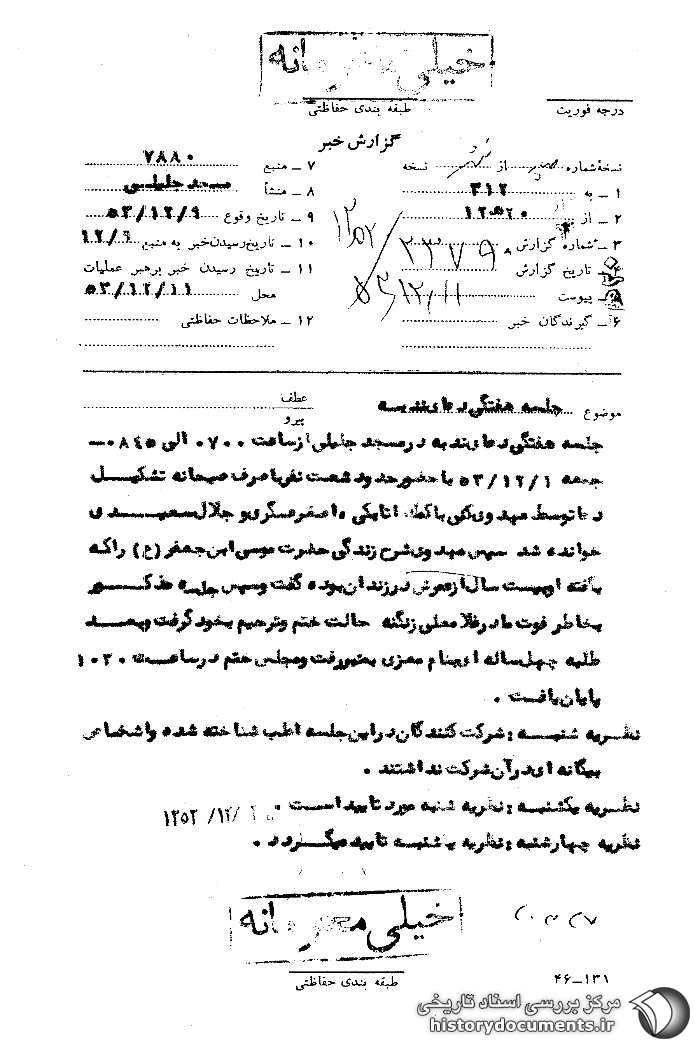 خیلی محرمانه
طبقه بندی حفاظتی
درجه فوریت
گزارش خبر
نسخهٔ شماره از نسخه
۱ ــ به ۳۱۲
۲ ــ از ۱۲ ۲۰
۳ ــ شماره گزارش ۲۳۷۹۸
تاریخ گزارش ۵۳/۱۲/۱۱
پیوست
۶ ــ گیرندگان خبر
۷ ــ منبع ۷۸۸۰
۸ ــ منشأ مسجد جلیلی
۹ ــ تاریخ وقوع ۵۳/۱۲/۹
۱۰ ــ تاریخ رسیدن خبر به منبع ۱۲/۹
۱۱ ــ تاریخ رسیدن خبر برهبر عملیات
محل ۵۳/۱۲/۱۱
۱۲ ــ ملاحظات حفاظتی
موضوع جلسه هفتگی دعای ندبه
عطف
پیرو
جلسه هفتگی دعای ندبه در مسجد جلیلی از ساعت ۰۷۰۰ الی ۰۸۴۵ ــ
جمعه ۵۳/۱۲/۱ با حضور حدود شصت نفر با صرف صبحانه تشکیل
دعا توسط مهدوی کنی با کمک اتابکی ، اصغر عسگری و جلال سعیدی
خوانده شد سپس مهدوی شرح زندگی حضرت موسی ابن جعفر (ع) را که
یافته او بیست سال از عمرش در زندان بوده گفت و سپس جلسه مذکور
بخاطر فوت مادر غلامعلی زنگنه حالت ختم و ترحیم بخود گرفت و بعد
طلبه چهل ساله ای بنام معزی بمنبر رفت و مجلس ختم در ساعت ۱۰۳۰
پایان یافت .
نظریه شنبه : شرکت کنندگان در این جلسه اغلب شناخته شده و اشخاص
بیگانه ای در آن شرکت نداشتند .
نظریه یکشنبه : نظریه شنبه مورد تایید است .
نظریه چهارشنبه : نظریه یکشنبه تایید میگردد .
خیلی محرمانه
طبقه بندی حفاظتی
۴۶ــ۱۳۱
مرکز بررسی اسناد تاریخی
historydocuments.ir